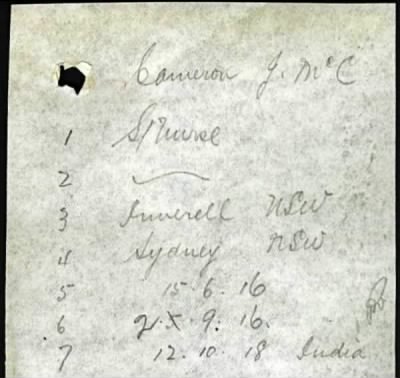 Cameron J. McC
1 S/Nurse
2 —
3 Inverell NSW
4 Sydney NSW
5 15. 6. 16
6 9. 16.
7 12. 10. 18 India